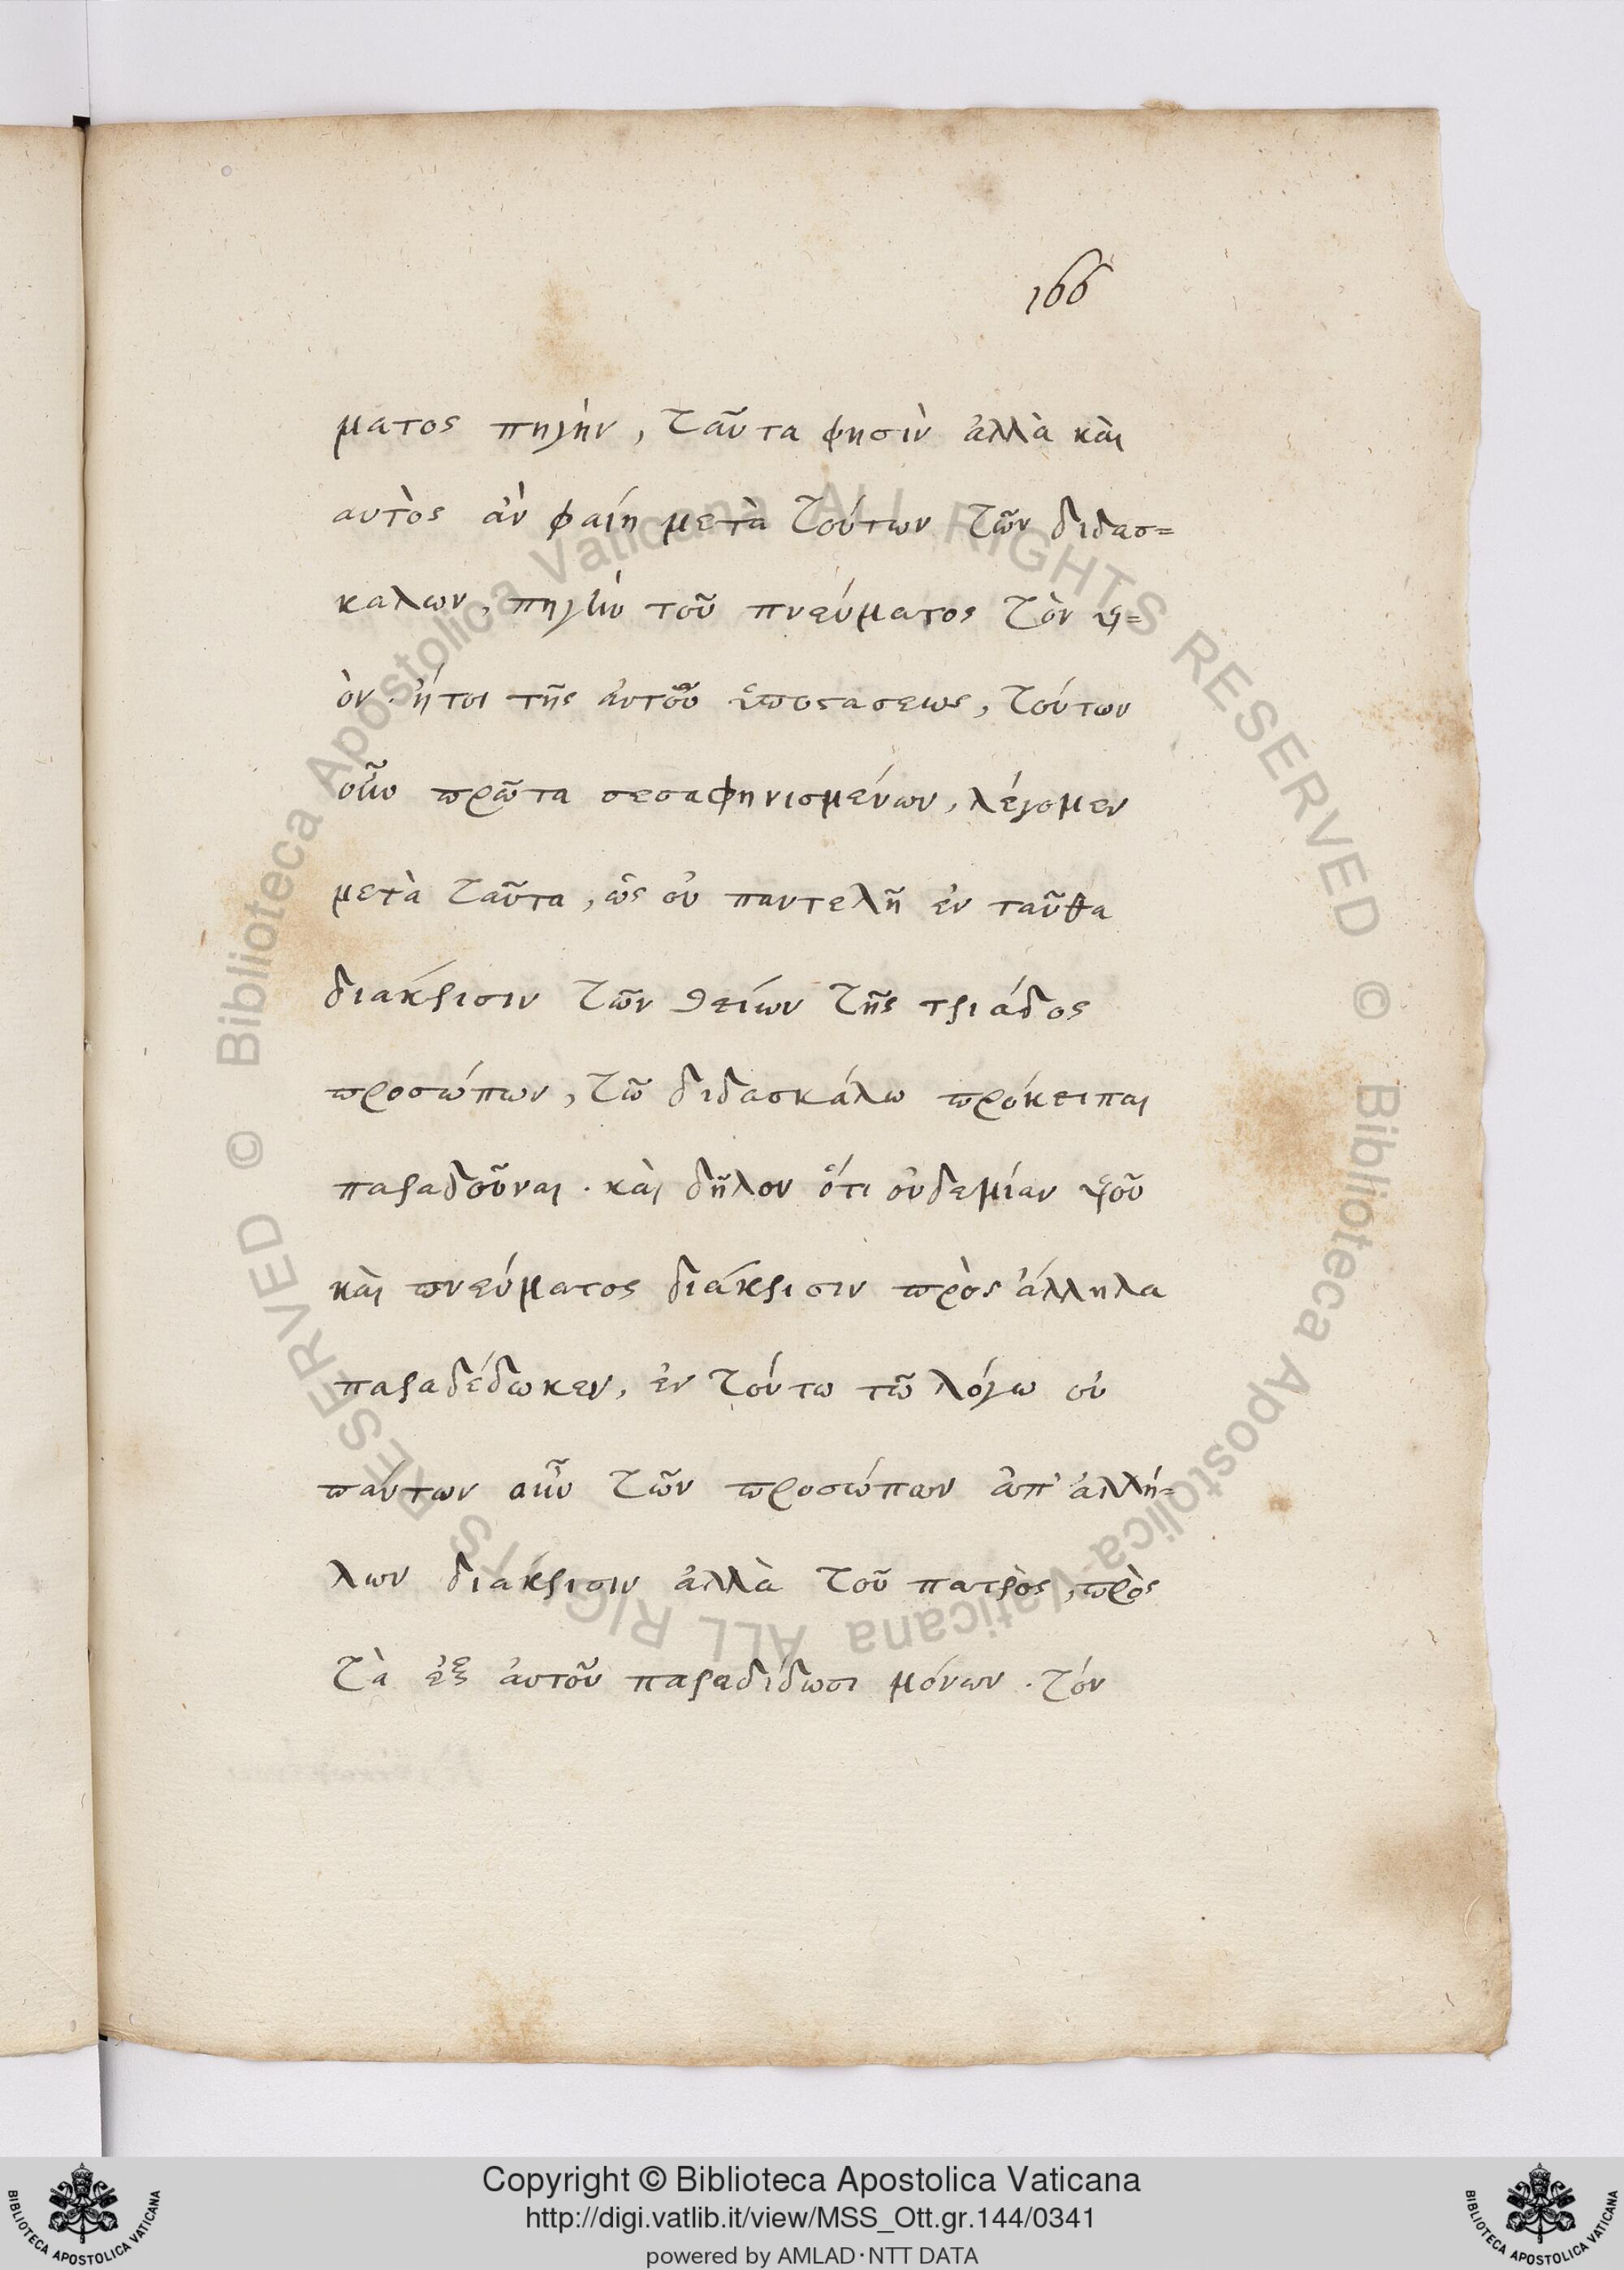 166
ματος πηγὴν, ταῦτα φησὶν ἀλλὰ καὶ
αυτὸς ἀν φαίη μετὰ τούτων τῶν διδασ=
καλων, πηγὴν τοῦ πνεύματος τὸν ὑι=
ὸν. ἤτοι τῆς ἀυτοῦ ὑποστασεως, τούτων
οὖν πρῶτα σεσαφηνισμένων, λέγομεν
μετὰ ταῦτα, ὡς οὐ παντελῆ ἐν ταῦθα
διάκρισιν τῶν θείων τῆς τριάδος
προσώπων, τῶ διδασκάλω πρόκειται
παραδοῦναι. καὶ δῆλον ὅτι οὐδεμίαν ὑιοῦ
καὶ πνεύματος διάκρισιν πρὸς ἄλληλα
παραδέδωκεν, ἐν τούτω τῶ λόγω οὐ
πάντων οὖν τῶν προσώπων ἀπ' ἀλλή=
λων διάκρισιν ἀλλὰ τοῦ πατρὸς, πρὸς
τὰ ἐξ ἀυτοῦ παραδίδωσι μόνων. τόν
© Biblioteca Apostolica Vaticana ALL RIGHTS RESERVED
© Biblioteca Apostolica Vaticana ALL RIGHTS RESERVED
Copyright © Biblioteca Apostolica Vaticana
http://digi.vatlib.it/view/MSS_Ott.gr.144/0341
powered by AMLAD·NTT DATA
BIBLIOTECA APOSTOLICA VATICANA
BIBLIOTECA APOSTOLICA VATICANA